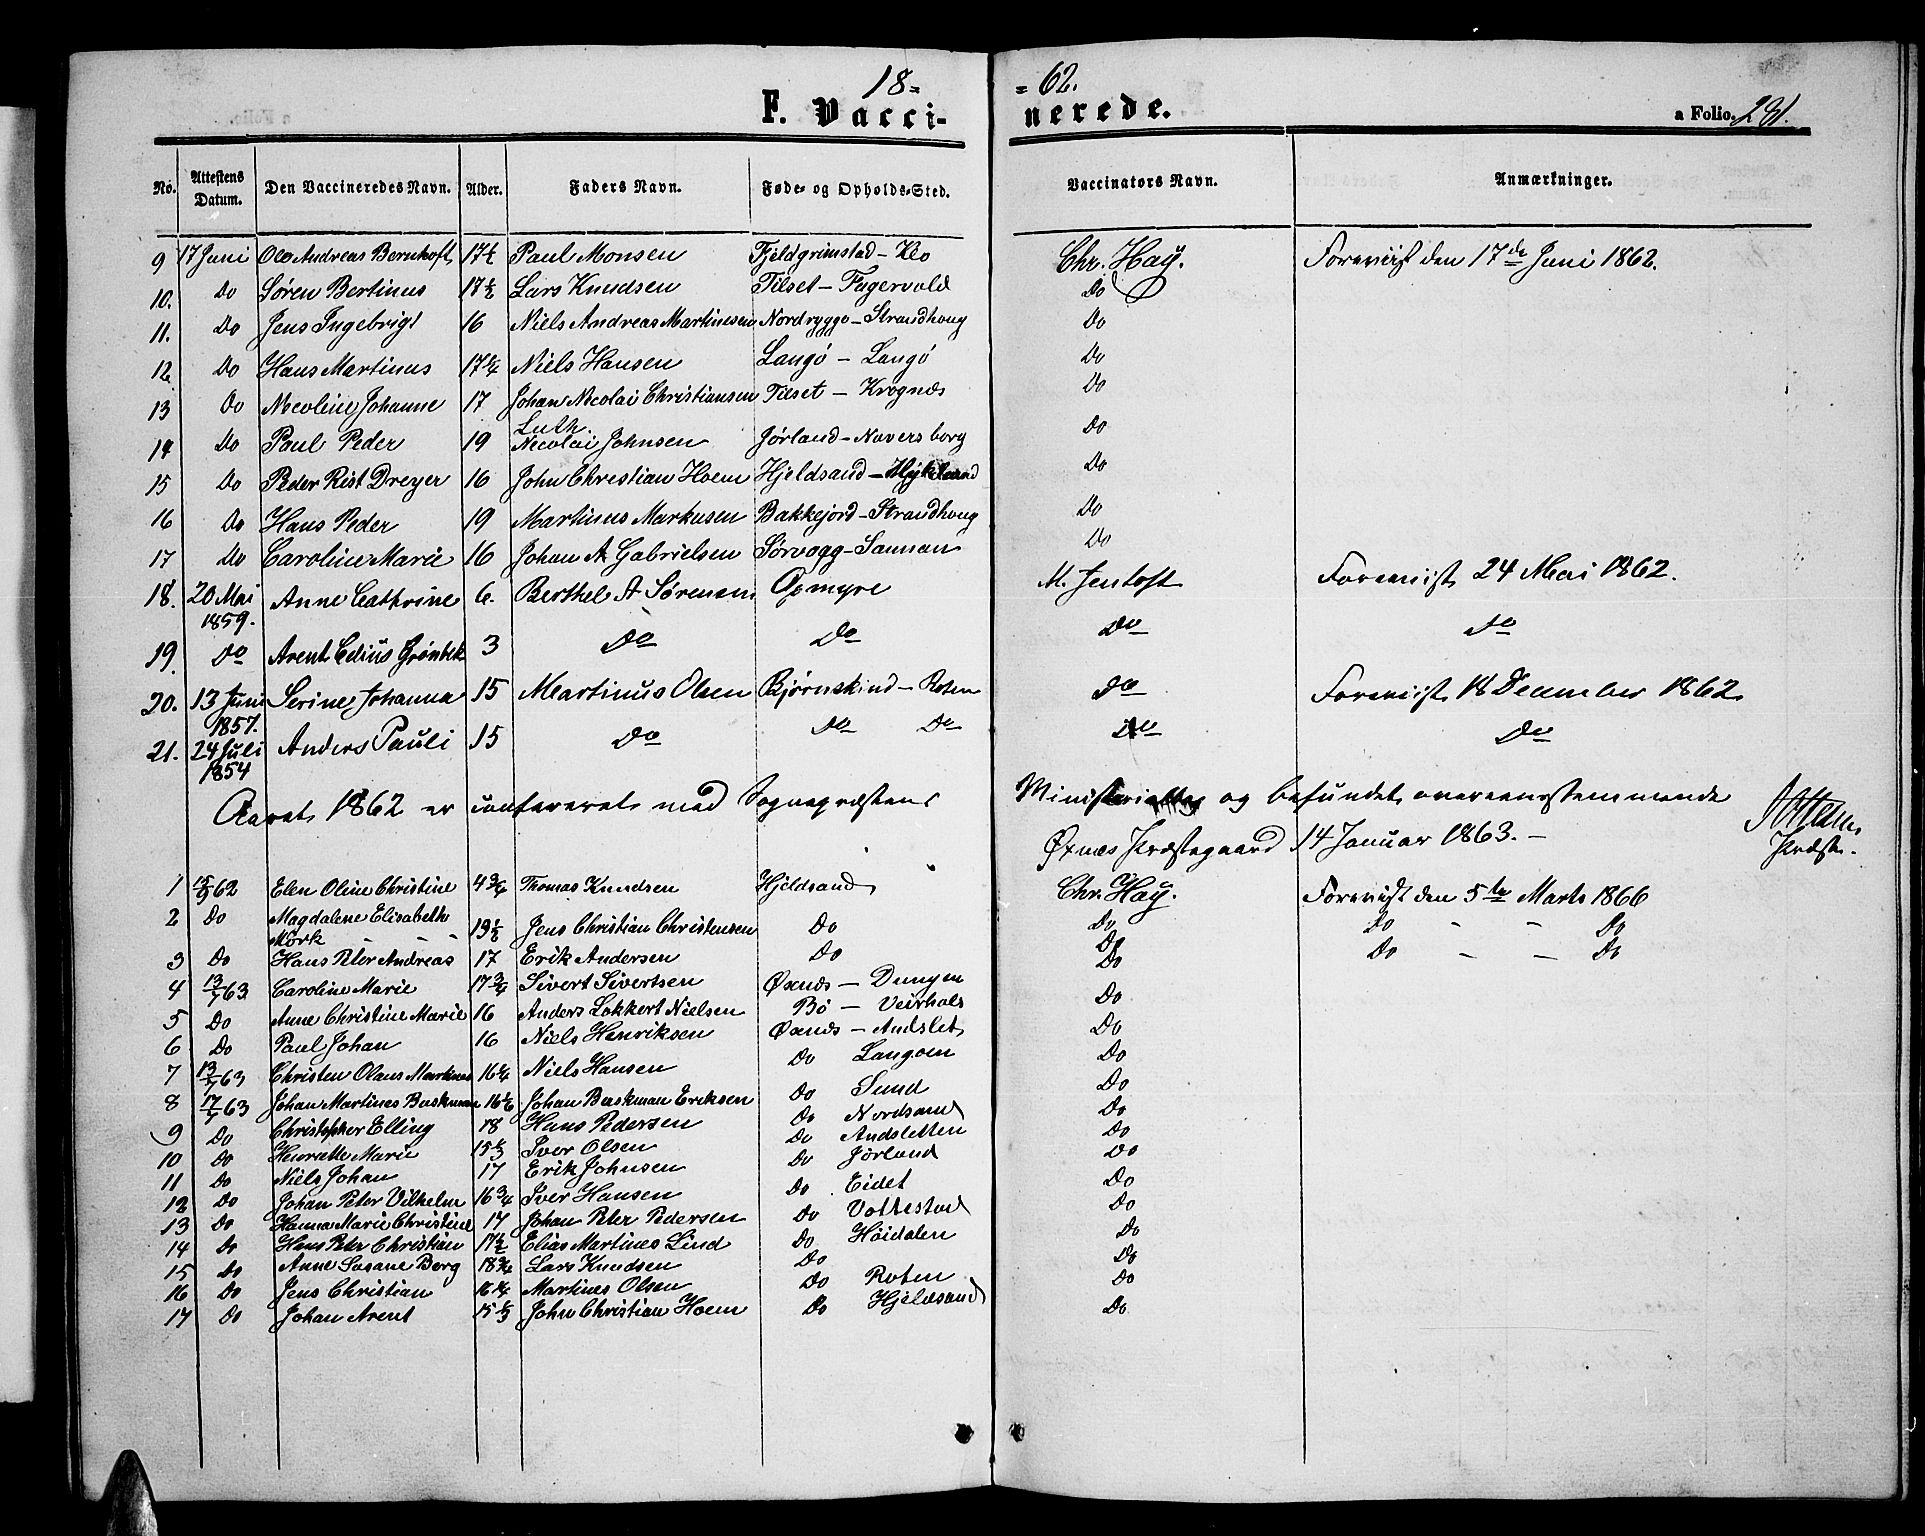 18= =62.
F. Vacci- nerede. a Folio. 231.
No. Attestens Datum. Den Vaccineredes Navn. Alder. Faders Navn. Føde- og Opholds-Sted. Vaccinators Navn. Anmærkninger.
9 17 Juni Ole Andreas Bernhoft 17½ Paul Monsen Fjeldgrimstad – Klo Chr. Hay. Foreviist den 17de Juni 1862.
10. Do Søren Bertinus 17½ Lars Knudsen Tilset – Fagervold Do
11. Do Jens Ingebrigt 16 Niels Andreas Martinesen Nordrygge – Strandhoug Do
12 Do Hans Martinus 17¼ Niels Hansen Langø – Langø Do
13 Do Nicoline Johanne 17 Johan Nicolai Christiansen Tilset – Krognæs Do
14 Do Paul Peder 19 Luth Nicolai Johnsen Jørland – Naversborg Do
15 Do Peder Rist Dreyer 16 John Christian Hoem Hjeldsand – Do
16 Do Hans Peder 19 Martinus Markusen Bakkejord – Strandhoug Do
17 Do Caroline Marie 16 Johan A Gabrielsen Sørvaag – Sannan Do
18. 20 Mai 1859. Anne Cathrine 6. Berthel A Sørensen Opmyre M. Jentoft Foreviist 24 Mai 1862.
19. Do Arent Edius Grønbek 3 Do Do Do Do
20. 13 Juni 1857. Serine Johanna 15 Martinus Olsen Bjørnskind – Roten Do Foreviist 18 December 1862
21. 24 Juli 1854 Anders Pauli 15 Do Do Do Do Do
Aaret 1862 er confereret med Sognepræstens Ministerialbog og befundet overeensstemmende
Øxnes Præstegaard 14 Januar 1863. – Præst.
1 15/9 62 Elen Oline Christine 4¾ Thomas Knudsen Hjeldsand Chr. Hay. Foreviist den 5te Marts 1866
2 Do Magdalene Elisabeth Mörk 19½ Jens Christian Christensen Do Do Do – – Do
3 Do Hans Peter Andreas 17 Erik Andersen Do Do Do – – Do
4 13/7 63 Caroline Marie 17¾ Sivert Sivertsen Øxnæs – Dungen Do
5 Do Anne Christine Marie 16 Anders Lokkert Nielsen Bö – Veirhals Do
6 Do Paul Johan 16 Niels Henriksen Øxnæs – Andslet Do
7 13/7 63 Christen Olaus Martines 16¼ Niels Hansen Do Langoen Do
8 17/7 63 Johan Martines Buskman 16½ Johan Buskman Eriksen Do Sund Do
9 Do Christopher Elling 18 Hans Pedersen Do Nordsand Do
10 Do Henrette Marie 15⅓ Iver Olsen Do Andsletten Do
11 Do Niels Johan 17 Erik Johnsen Do Jörland Do
12 Do Johan Peter Vilhelm 16¾ Iver Hansen Do Eidet Do
13 Do Hanna Marie Christine 17 Johan Peter Pedersen Do Vottestad Do
14 Do Hans Peter Christian 17½ Elias Martines Lind Do Höidalen Do
15 Do Anne Susane Berg 18¾ Lars Knudsen Do Do
16 Do Jens Christian 16¼ Martines Olsen Do Roten Do
17 Do Johan Arent 15⅓ John Christian Hoem Do Hjeldsand Do